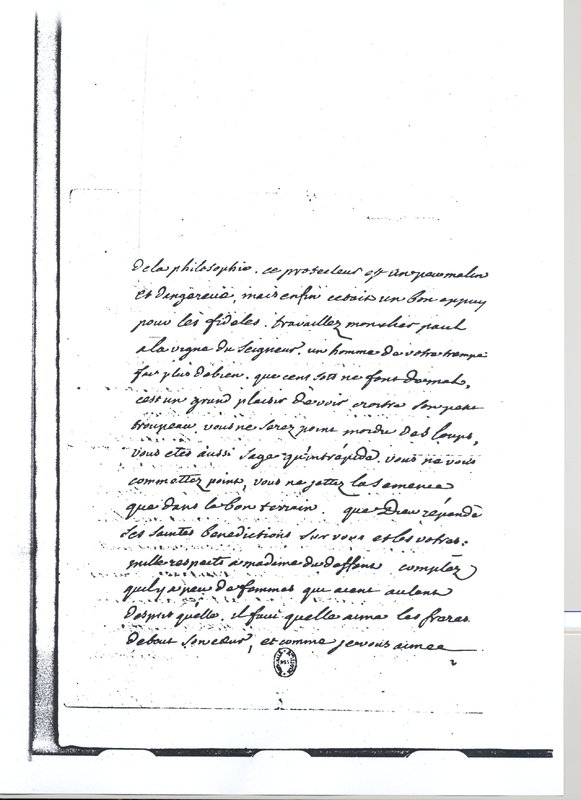 de la philosophie. ce protecteur est un peu malin
et dangereux, mais enfin cetait un bon appuy
pour les fideles. travaillez mon cher paul
a la vigne du seigneur. un homme de votre trempe
fait plus de bien, que cent sots ne font de mal,
cest un grand plaisir de voir croitre son petit
troupeau, vous ne serez point mordu des loups,
vous etes aussi sage qu'intrépide. vous ne vous
commettez point, vous ne jettez la semence
que dans le bon terrain. que Dieu répande
ses saintes benedictions sur vous et les votres:
mille respects a madame du deffant comptez
quil y a peu de femmes qui aient autant
desprit quelle. il faut quelle aime les freres
de tout son coeur, et comme je vous aime